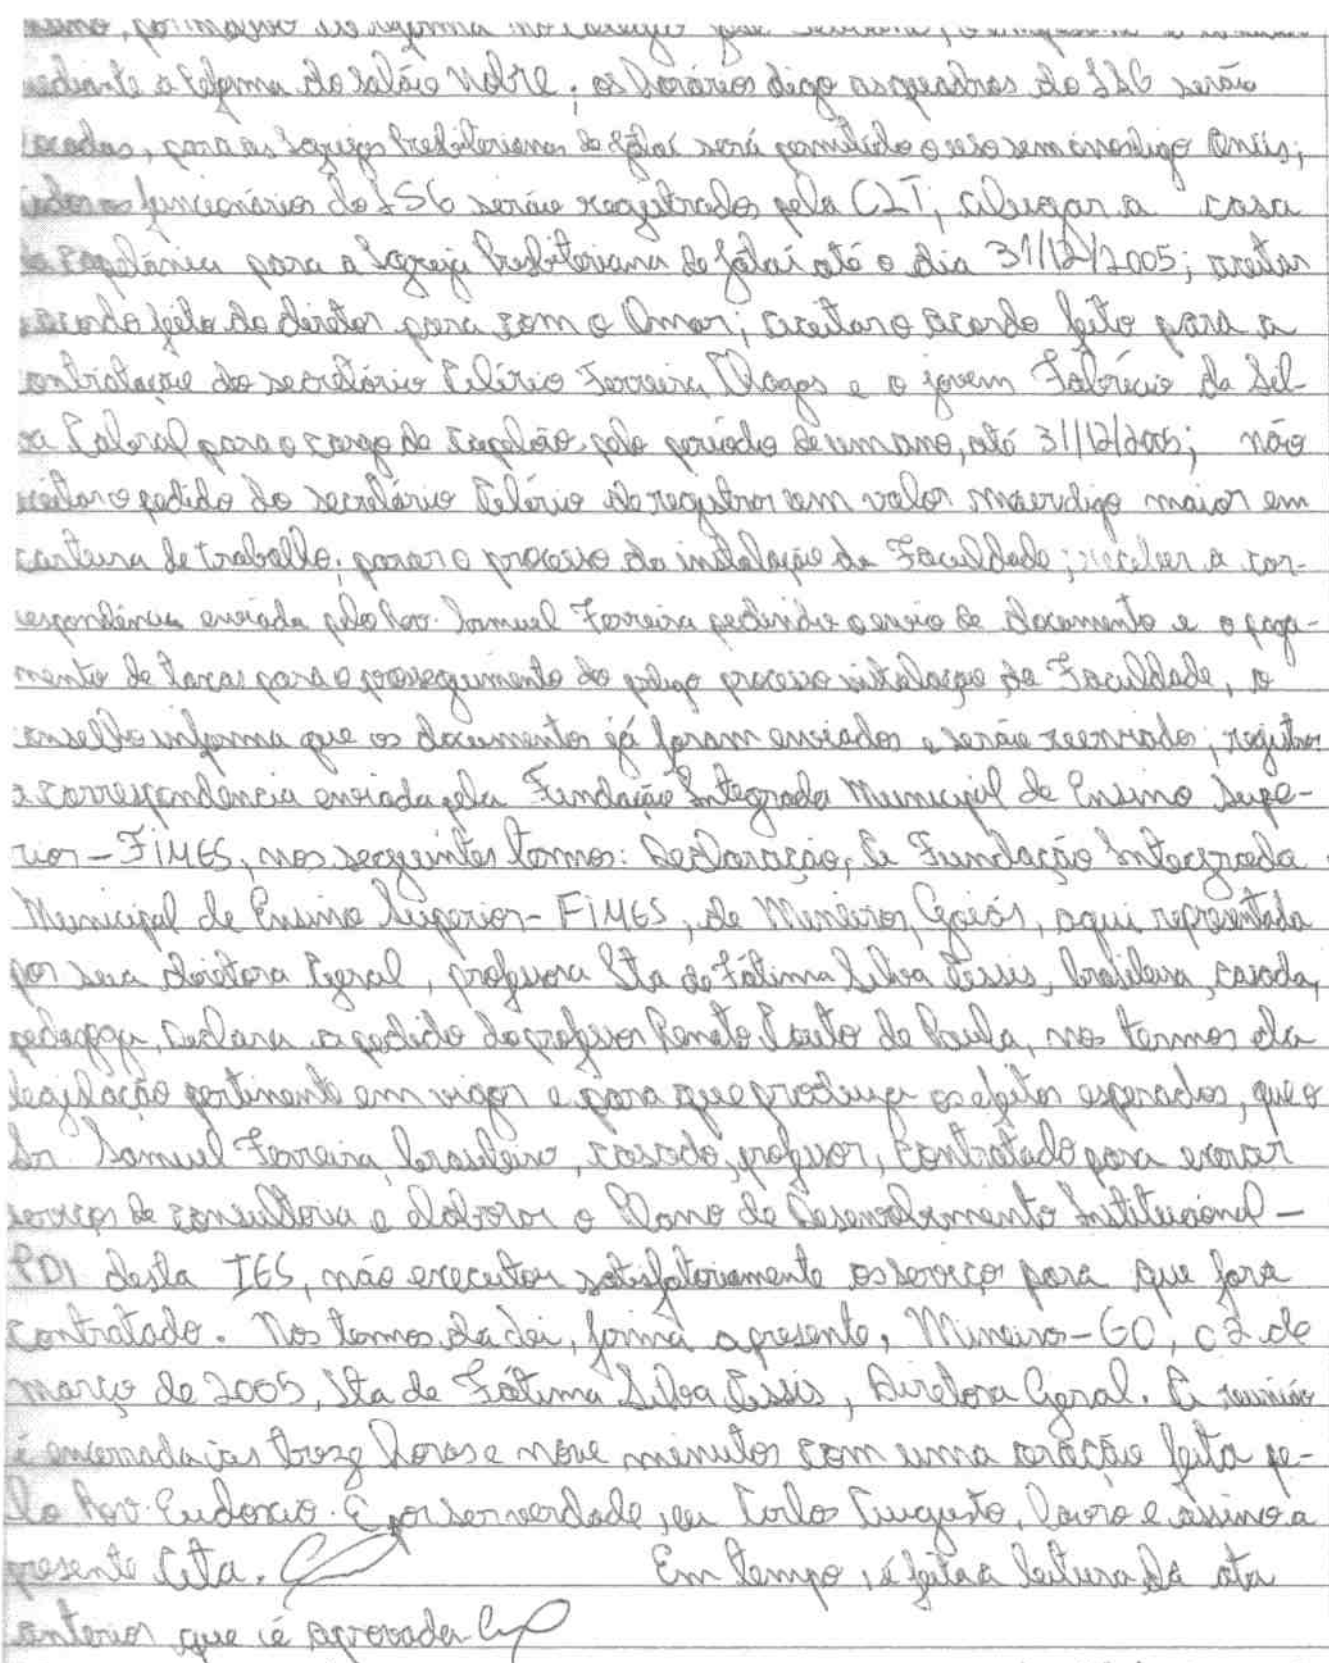 mediante a reforma do salão nobre; os horários digo as quadras do ISG serão
locadas, para as Igrejas Presbiterianas de Jataí será permitido o uso sem inodigo ônus;
funcionários do ISG serão registrados pela CLT; alugar a casa
de capelânia para a Igreja Presbiteriana de Jataí até o dia 31/12/2005; aceitar
acordo feito do diretor para com o Omar; aceitar o acordo feito para a
contratação do secretário Celério Ferreira Chagas e o jovem Fabrício da Sil-
va Cabral para o cargo de capelão pelo período de um ano, até 31/12/2005; não
aceitar o pedido do secretário Celério de registrar um valor digo maior em
carteira de trabalho; parar o processo da instalação da Faculdade; receber a cor-
respondência enviada pelo Rev. Samuel Ferreira pedindo o envio de documento e o paga-
mento de taxas para o prosseguimento do digo processo instalação da Faculdade, o
conselho informa que os documentos já foram enviados e serão reenviados; registrar
a correspondência enviada pela Fundação Integrada Municipal de Ensino Supe-
rior - FIMES, nos seguintes termos: Declaração, A Fundação Integrada
Municipal de Ensino Superior - FIMES, de Mineiros, Goiás, aqui representada
por sua diretora Geral, professora Ita de Fátima Silva Assis, brasileira, casada,
pedagoga, declara a pedido do professor Renato Couto de Paula, nos termos da
legislação pertinente em vigor e para que produza os efeitos esperados, que o
Sr. Samuel Ferreira, brasileiro, casado, professor, contratado para exercer
serviços de consultoria e elaborar o Plano de Desenvolvimento Institucional -
PDI desta IES, não executou satisfatoriamente os serviço para que fora
contratado. Nos termos da Lei, firma a presente, Mineiros - GO, 02 de
março de 2005, Ita de Fátima Silva Assis, Diretora Geral. A reunião
é encerrada às treze horas e nove minutos com uma oração feita pe-
lo Rev. Eudoxio. E por ser verdade, eu Carlos Augusto, lavro e assino a
presente Ata. Em tempo, é feita a leitura da ata
anterior que é aprovada